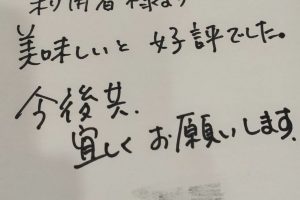 利用者様より
美味しいと 好評でした。
今後共、
宜しく お願いします。